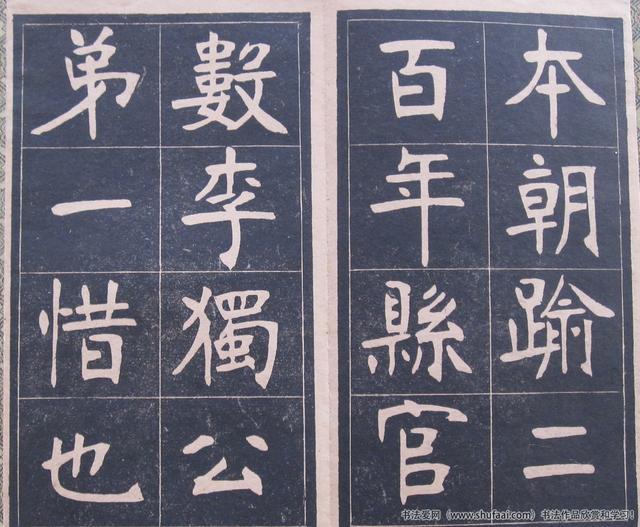 本朝踰二
百年縣官
數李獨公
弟一惜也
书法爱网（www.shufaai.com）书法作品欣赏和学习！